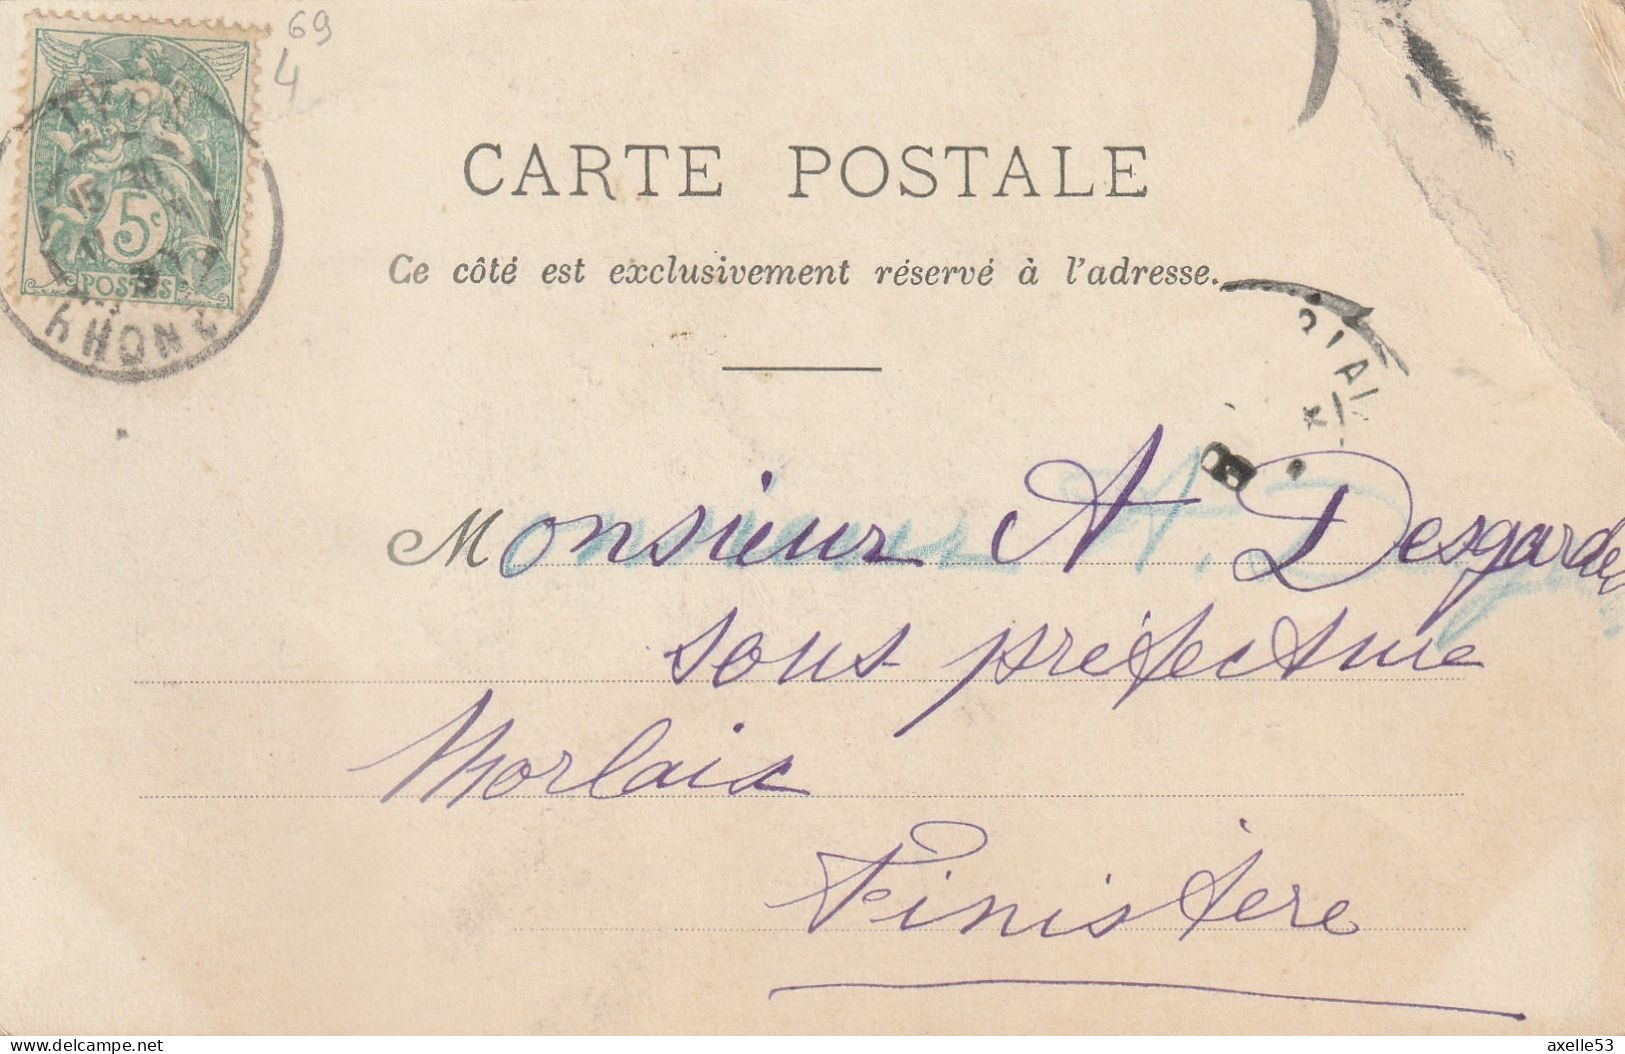 69
4
5c
POSTES
RHONE
CARTE POSTALE
Ce côté est exclusivement réservé à l'adresse.
Monsieur A Desgardes
sous préfecture
Morlaix
Finistère
axelle53